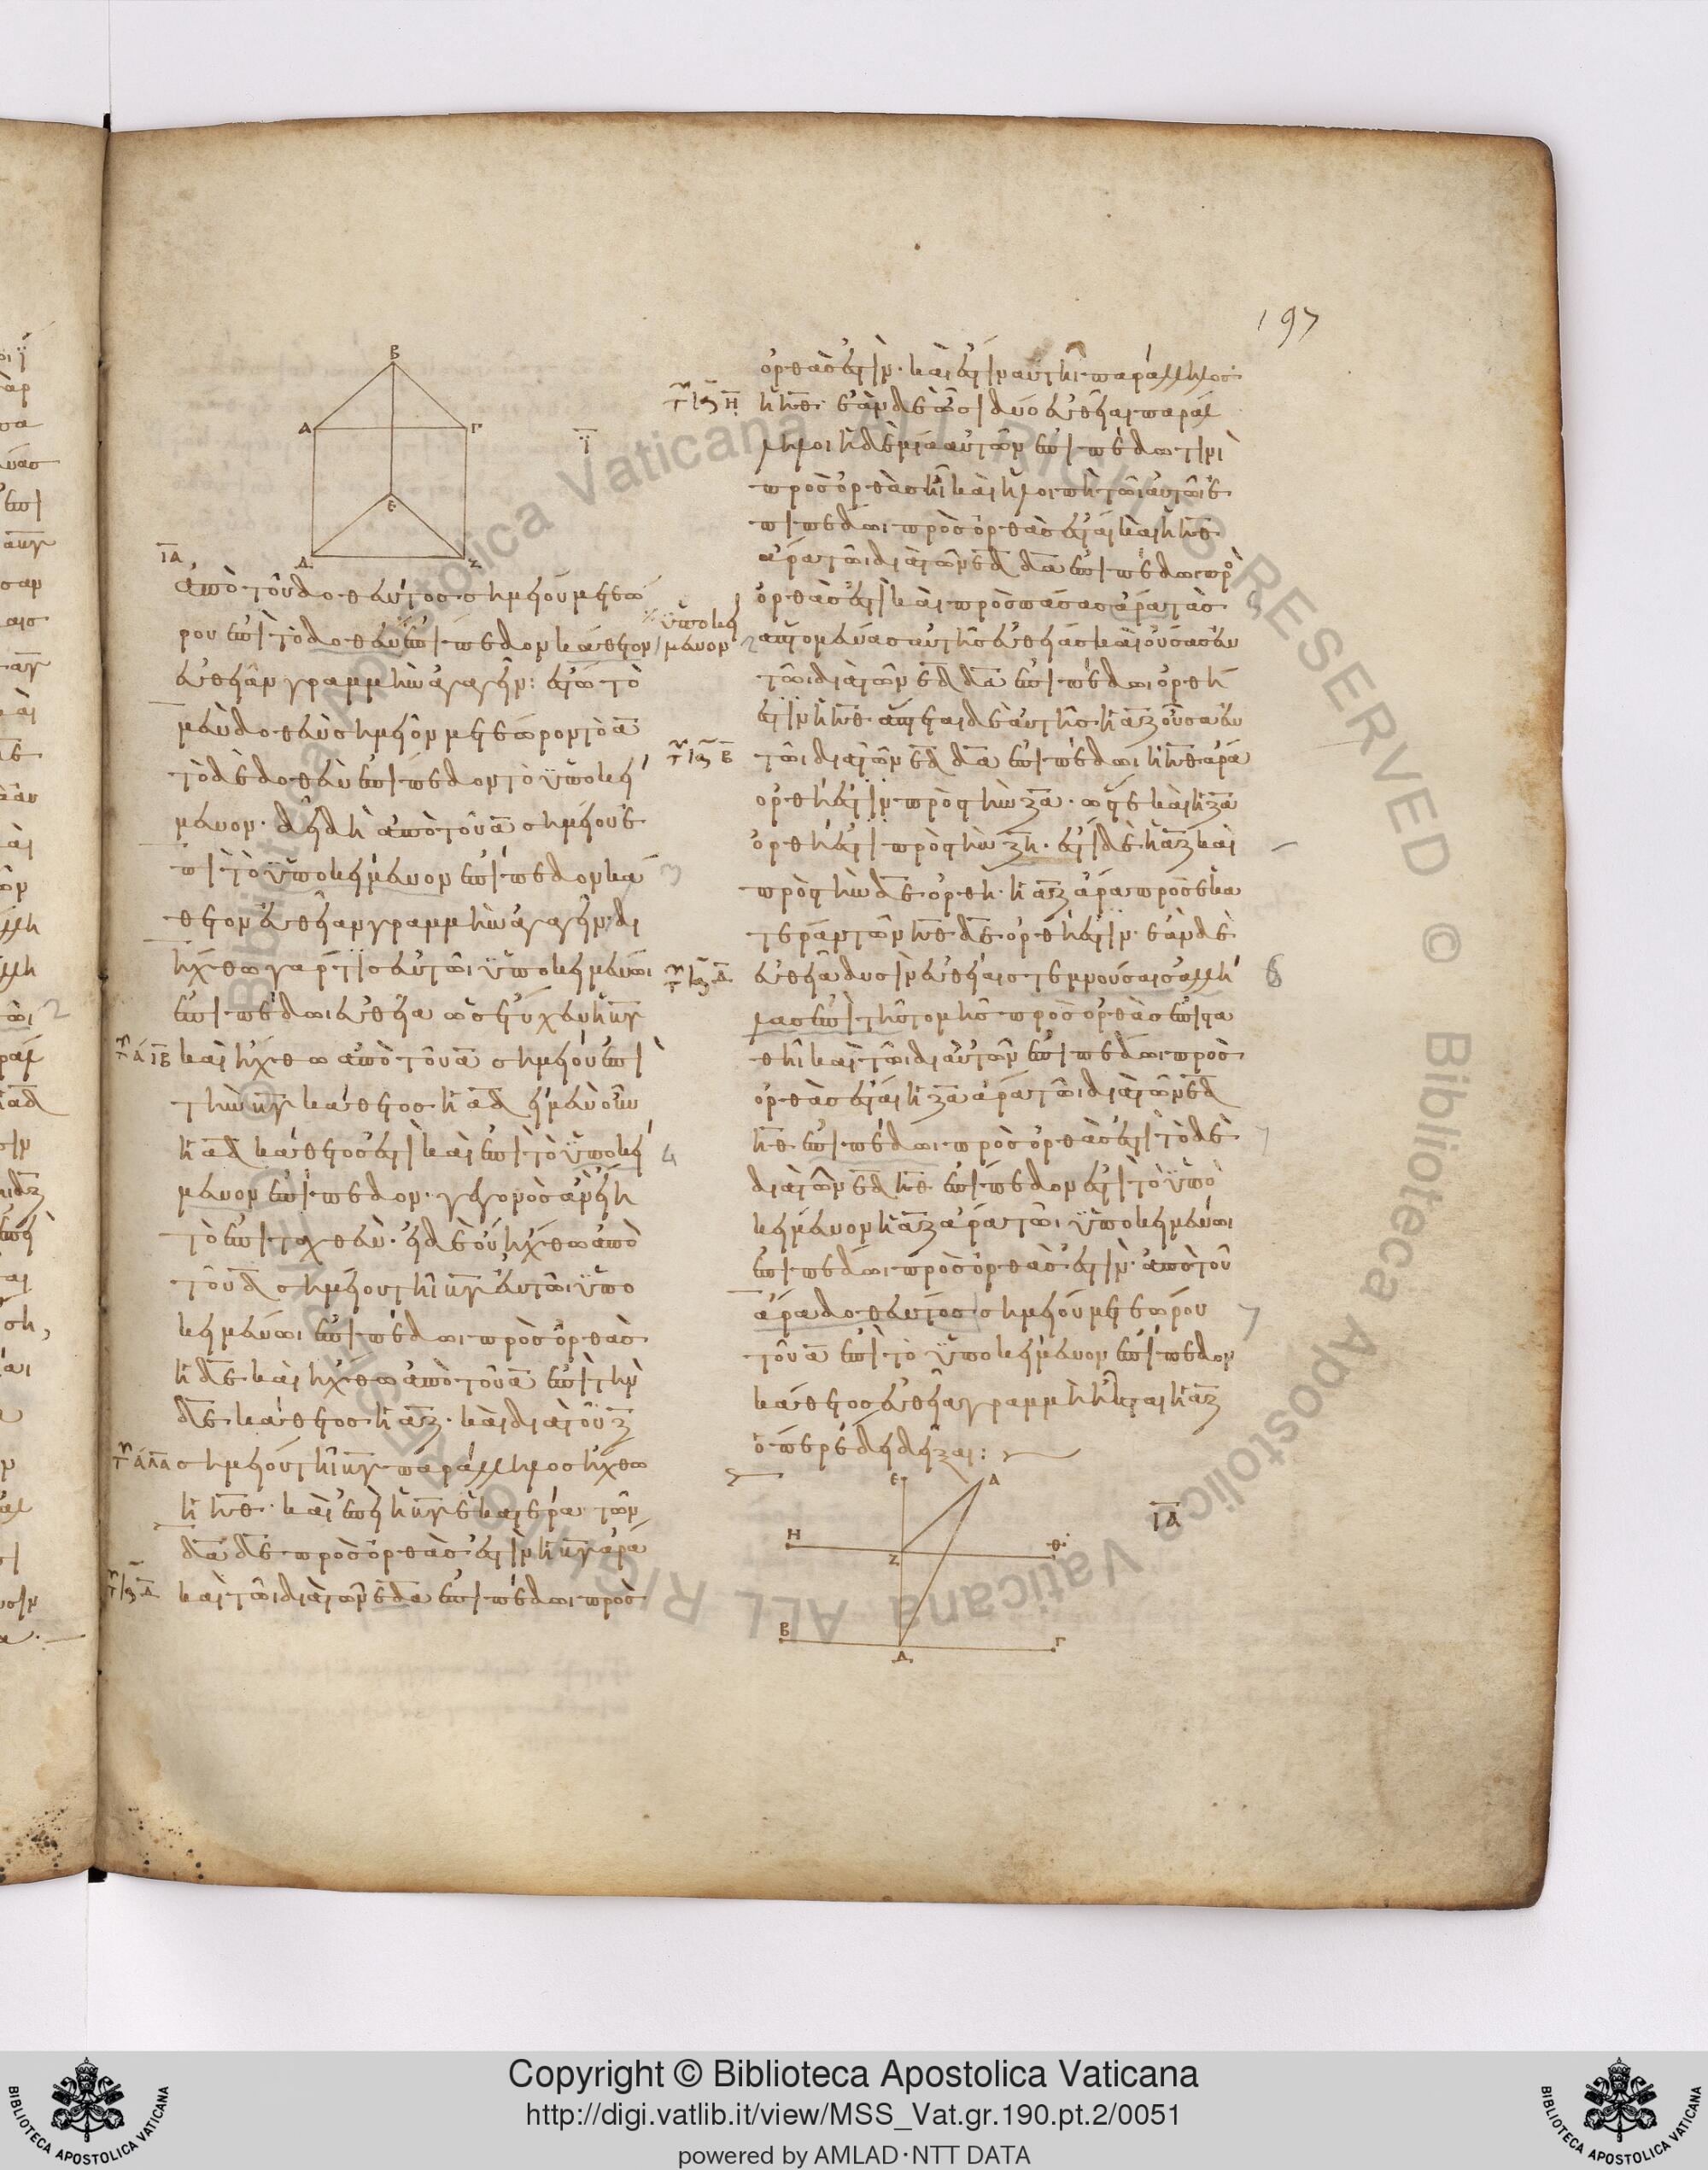 197
Β
Α
Γ
Ε
Δ
Ζ
ϊ
ια
ἀπὸ τοῦ δοθέντος σημείου μετεώ
ρου ἐπὶ τὸ δοθὲν ἐπίπεδον κάθετον
ὑποκεί
μενον
εὐθεῖαν γραμμὴν ἀγαγεῖν: ἔστω τὸ
μὲν δοθὲν σημεῖον μετέωρον τὸ α
τὸ δὲ δοθὲν ἐπίπεδον τὸ ὑποκεί
μενον· δεῖ δὴ ἀπὸ τοῦ α σημείου ἐ
πὶ τὸ ὑποκείμενον ἐπίπεδον κά
θετον εὐθεῖαν γραμμὴν ἀγαγεῖν· δι
ήχθω γάρ τις ἐν τῶι ὑποκειμένωι
ἐπιπέδωι εὐθεῖα ὡς ἔτυχεν ἡ βγ
καὶ ἤχθω ἀπὸ τοῦ α σημείου ἐπὶ
τὴν βγ κάθετος ἡ αδ εἰ μὲν οὖν
ἡ αδ κάθετός ἐστι καὶ ἐπὶ τὸ ὑποκεί
μενον ἐπίπεδον· γεγονὸς ἂν εἴη
τὸ ἐπιταχθέν· εἰ δὲ οὔ ἤχθω ἀπὸ
τοῦ δ σημείου τῆι βγ ἐν τῶι ὑπο
κειμένωι ἐπιπέδωι πρὸς ὀρθὰς
ἡ δε καὶ ἤχθω ἀπὸ τοῦ α ἐπὶ τὴν
δε κάθετος ἡ αζ· καὶ διὰ τοῦ ζ
σημείου τῆι βγ παράλληλος ἤχθω
ἡ ηθ· καὶ ἐπεὶ ἡ βγ ἑκατέρα τῶν
δα δε πρὸς ὀρθάς ἐστιν ἡ βγ ἄρα
καὶ τῶι διὰ τῶν εδα ἐπιπέδωι πρὸς
ὀρθάς ἐστιν· καί ἐστιν αὐτῆι παράλληλος
ἡ ηθ· ἐὰν δὲ ὦσι δύο εὐθεῖαι παράλ
ληλοι ἡ δὲ μία αὐτῶν ἐπιπέδω τινὶ
πρὸς ὀρθὰς ἦι καὶ ἡ λοιπὴ τῶι αὐτῶι ἐ
πιπέδωι πρὸς ὀρθὰς ἔσται καὶ ἡ ηθ
ἄρα τῶι διὰ τῶν εδ δα ἐπιπέδωι πρὸς
ὀρθάς ἐστι καὶ πρὸς πάσας ἄρα τὰς
ἁπτομένας αὐτῆς εὐθείας καὶ οὔσας ἐν
τῶι διὰ τῶν εδ δα ἐπιπέδωι ὀρθή
ἐστιν ἡ ηθ ἅπτεται δὲ αὐτῆς ἡ αζ οὖσα ἐν
τῶι διὰ τῶν εδ δα ἐπιπέδωι ἡ ηθ ἄρα
ὀρθή ἐστιν πρὸς τὴν ζα· ὥστε καὶ ἡ ζα
ὀρθή ἐστι πρὸς τὴν ζη· ἔστι δὲ ἡ αζ καὶ
πρὸς τὴν δε ὀρθή· ἡ αζ ἄρα πρὸς ἑκα
τέραν τῶν ηθ δε ὀρθή ἐστιν· ἐὰν δὲ
εὐθεῖα δυσὶν εὐθείαις τεμνούσαις ἀλλή
λας ἐπὶ τῆς τομῆς πρὸς ὀρθὰς ἐπιστα
θῆι καὶ τῶι δι' αὐτῶν ἐπιπέδωι πρὸς
ὀρθὰς ἔσται ἡ ζα ἄρα τῶι διὰ τῶν εδ
ηθ ἐπιπέδωι πρὸς ὀρθάς ἐστι τὸ δὲ
διὰ τῶν εδ ηθ ἐπίπεδόν ἐστι τὸ ὑπο
κείμενον ἡ αζ ἄρα τῶι ὑποκειμένωι
ἐπιπέδωι πρὸς ὀρθάς ἐστιν· ἀπὸ τοῦ
ἄρα δοθέντος σημείου μετεώρου
τοῦ α ἐπὶ τὸ ὑποκείμενον ἐπίπεδον
κάθετος εὐθεῖα γραμμὴ ἦκται ἡ αζ
ὅπερ ἔδει δεῖξαι:
Ε
Α
Η
Ζ
Θ
Β
Δ
Γ
ια
Copyright © Biblioteca Apostolica Vaticana
http://digi.vatlib.it/view/MSS_Vat.gr.190.pt.2/0051
powered by AMLAD·NTT DATA
BIBLIOTECA APOSTOLICA VATICANA
BIBLIOTECA APOSTOLICA VATICANA